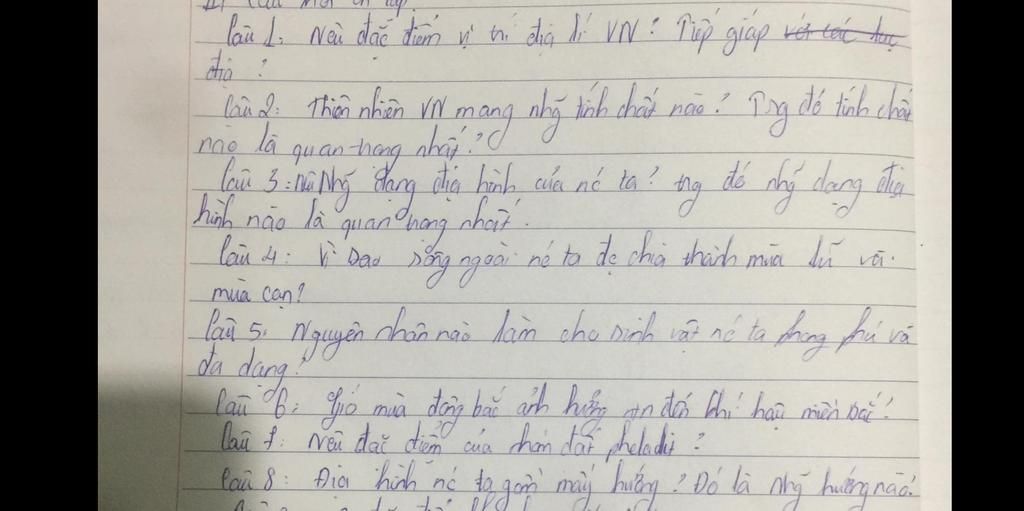 II. Câu hỏi ôn tập.
Câu 1: Nêu đặc điểm vị trí địa lí VN? Tiếp giáp với các lục
địa?
Câu 2: Thiên nhiên VN mang nhg̃ tính chất nào? Trg đó tính chất
nào là quan trọng nhất?
Câu 3: Nêu Nhg̃ dạng địa hình của nc ta? trg đó nhg̃ dạng địa
hình nào là quan trọng nhất.
Câu 4: Vì sao sông ngoài nc ta đc chia thành mùa lũ và
mùa cạn?
Câu 5: Nguyên nhân nào làm cho sinh vật nc ta phong phú và
đa dạng?
Câu 6: Gió mùa đông bắc ảnh hưởng ntn đến khí hậu miền Bắc?
Câu 7: Nêu đặc điểm của nhóm đất pheladit?
Câu 8: Địa hình nc ta gồm mấy hướng? Đó là nhg̃ hướng nào?